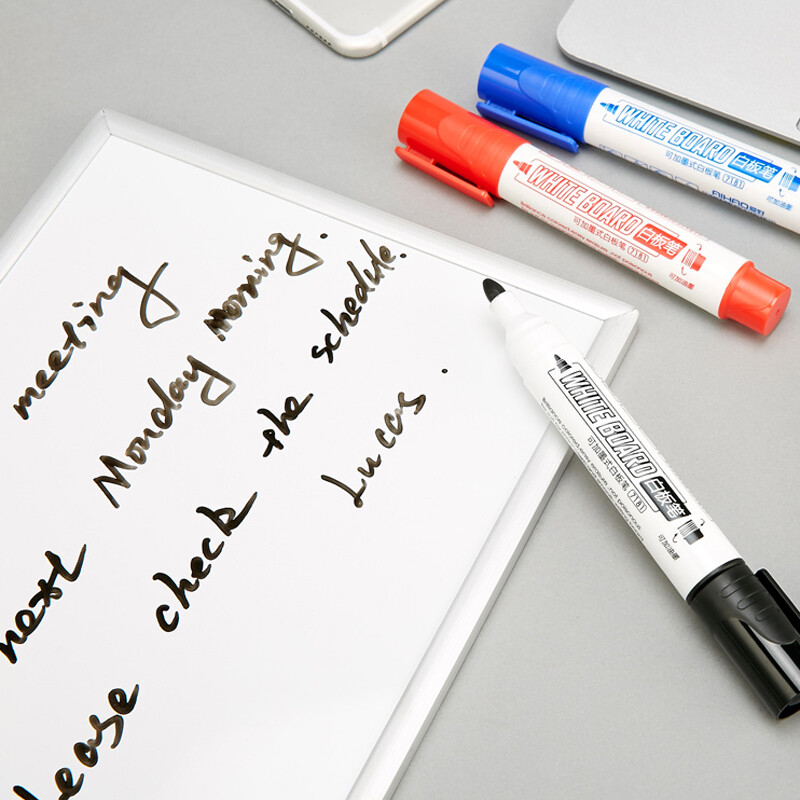 meeting
next Monday Morning.
lease check the schedule.
Lucas.
WHITE BOARD 白板笔
可加墨式白板笔 7181
可加油墨
AIHAO
WHITE BOARD 白板笔
可加墨式白板笔 7181
可加油墨
WHITE BOARD 白板笔
可加墨式白板笔 7181
可加油墨